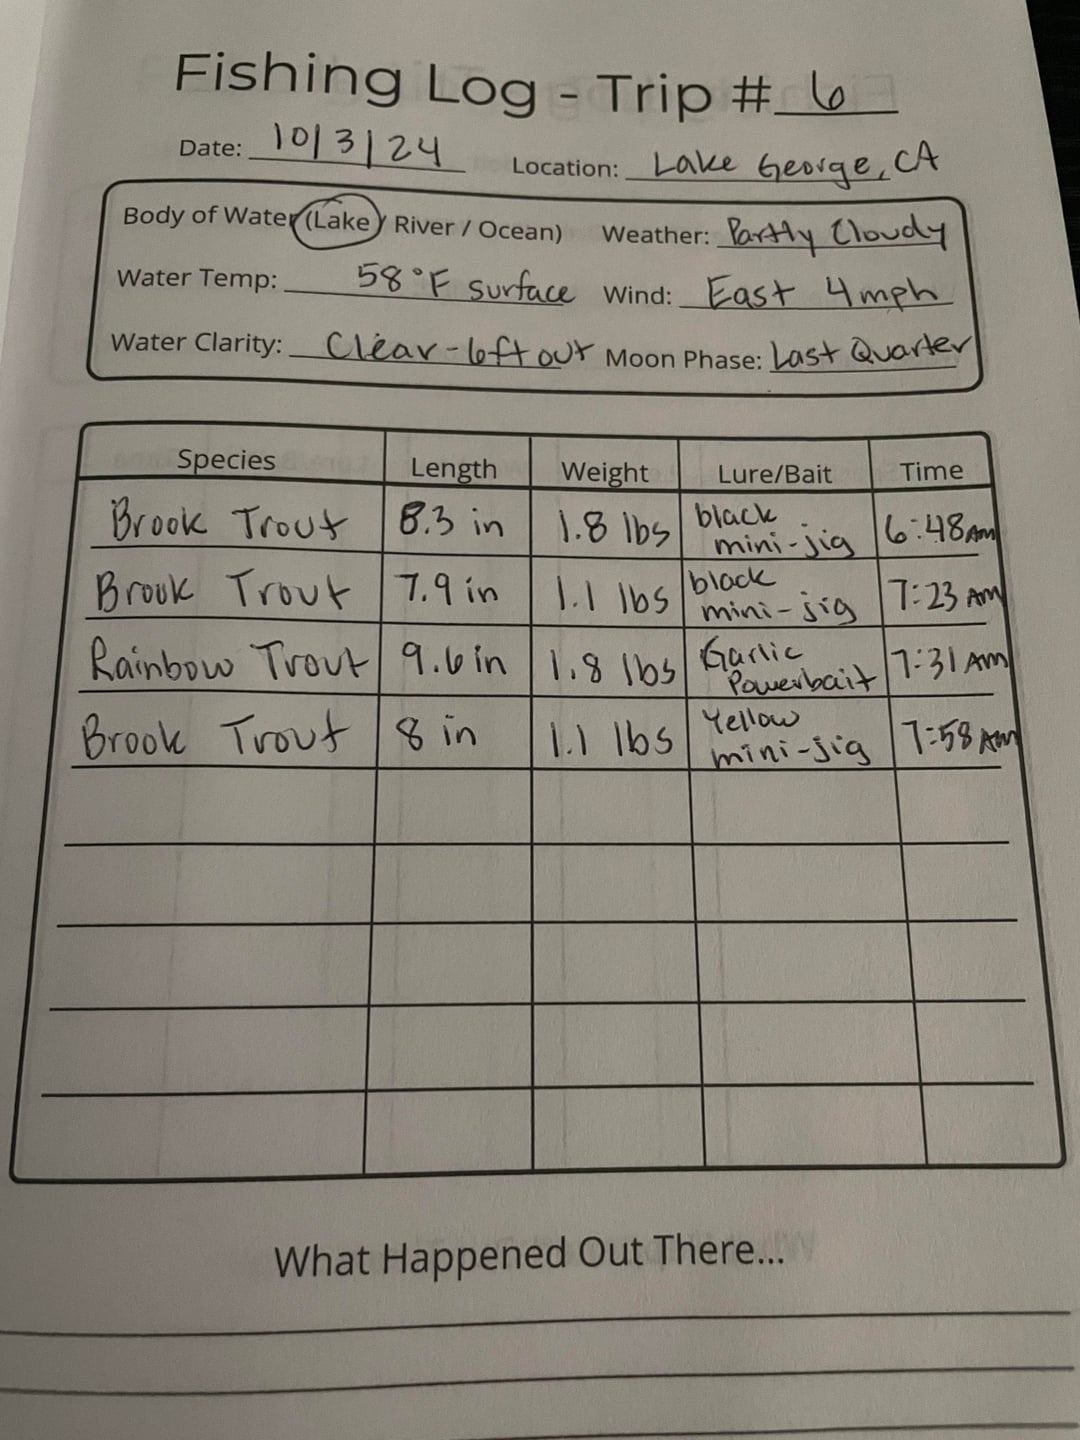 Fishing Log - Trip # 6
Date: 10/3/24 Location: Lake George, CA
Body of Water (Lake / River / Ocean) Weather: Partly Cloudy
Water Temp: 58°F surface Wind: East 4 mph
Water Clarity: Clear - 6ft out Moon Phase: Last Quarter
Species Length Weight Lure/Bait Time
Brook Trout 8.3 in 1.8 lbs black mini-jig 6:48 AM
Brook Trout 7.9 in 1.1 lbs black mini-jig 7:23 AM
Rainbow Trout 9.6 in 1.8 lbs Garlic Powerbait 7:31 AM
Brook Trout 8 in 1.1 lbs Yellow mini-jig 7:58 AM
What Happened Out There...